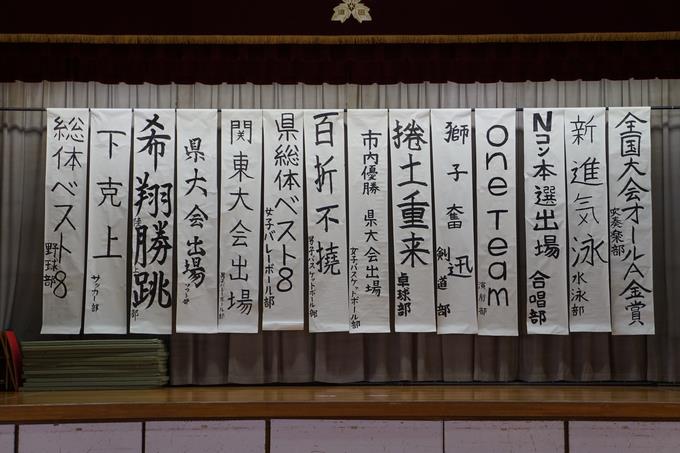 全国大会オールA金賞
吹奏楽部
新進気泳
水泳部
Nコン本選出場
合唱部
one Team
演劇部
獅子奮迅
剣道部
捲土重来
卓球部
市内優勝 県大会出場
女子バスケットボール部
百折不撓
男子バスケットボール部
県総体ベスト8
女子バレーボール部
関東大会出場
県大会出場
希翔勝跳
下克上
サッカー部
総体ベスト8
野球部